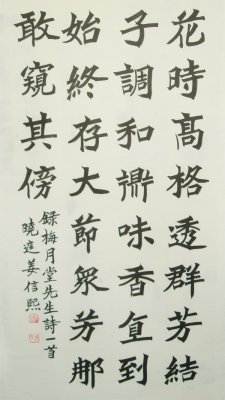 花時髙格透群芳結
子調和鼎味香直到
始終存大節衆芳那
敢窺其傍
錄梅月堂先生詩一首
曉庭姜信熙